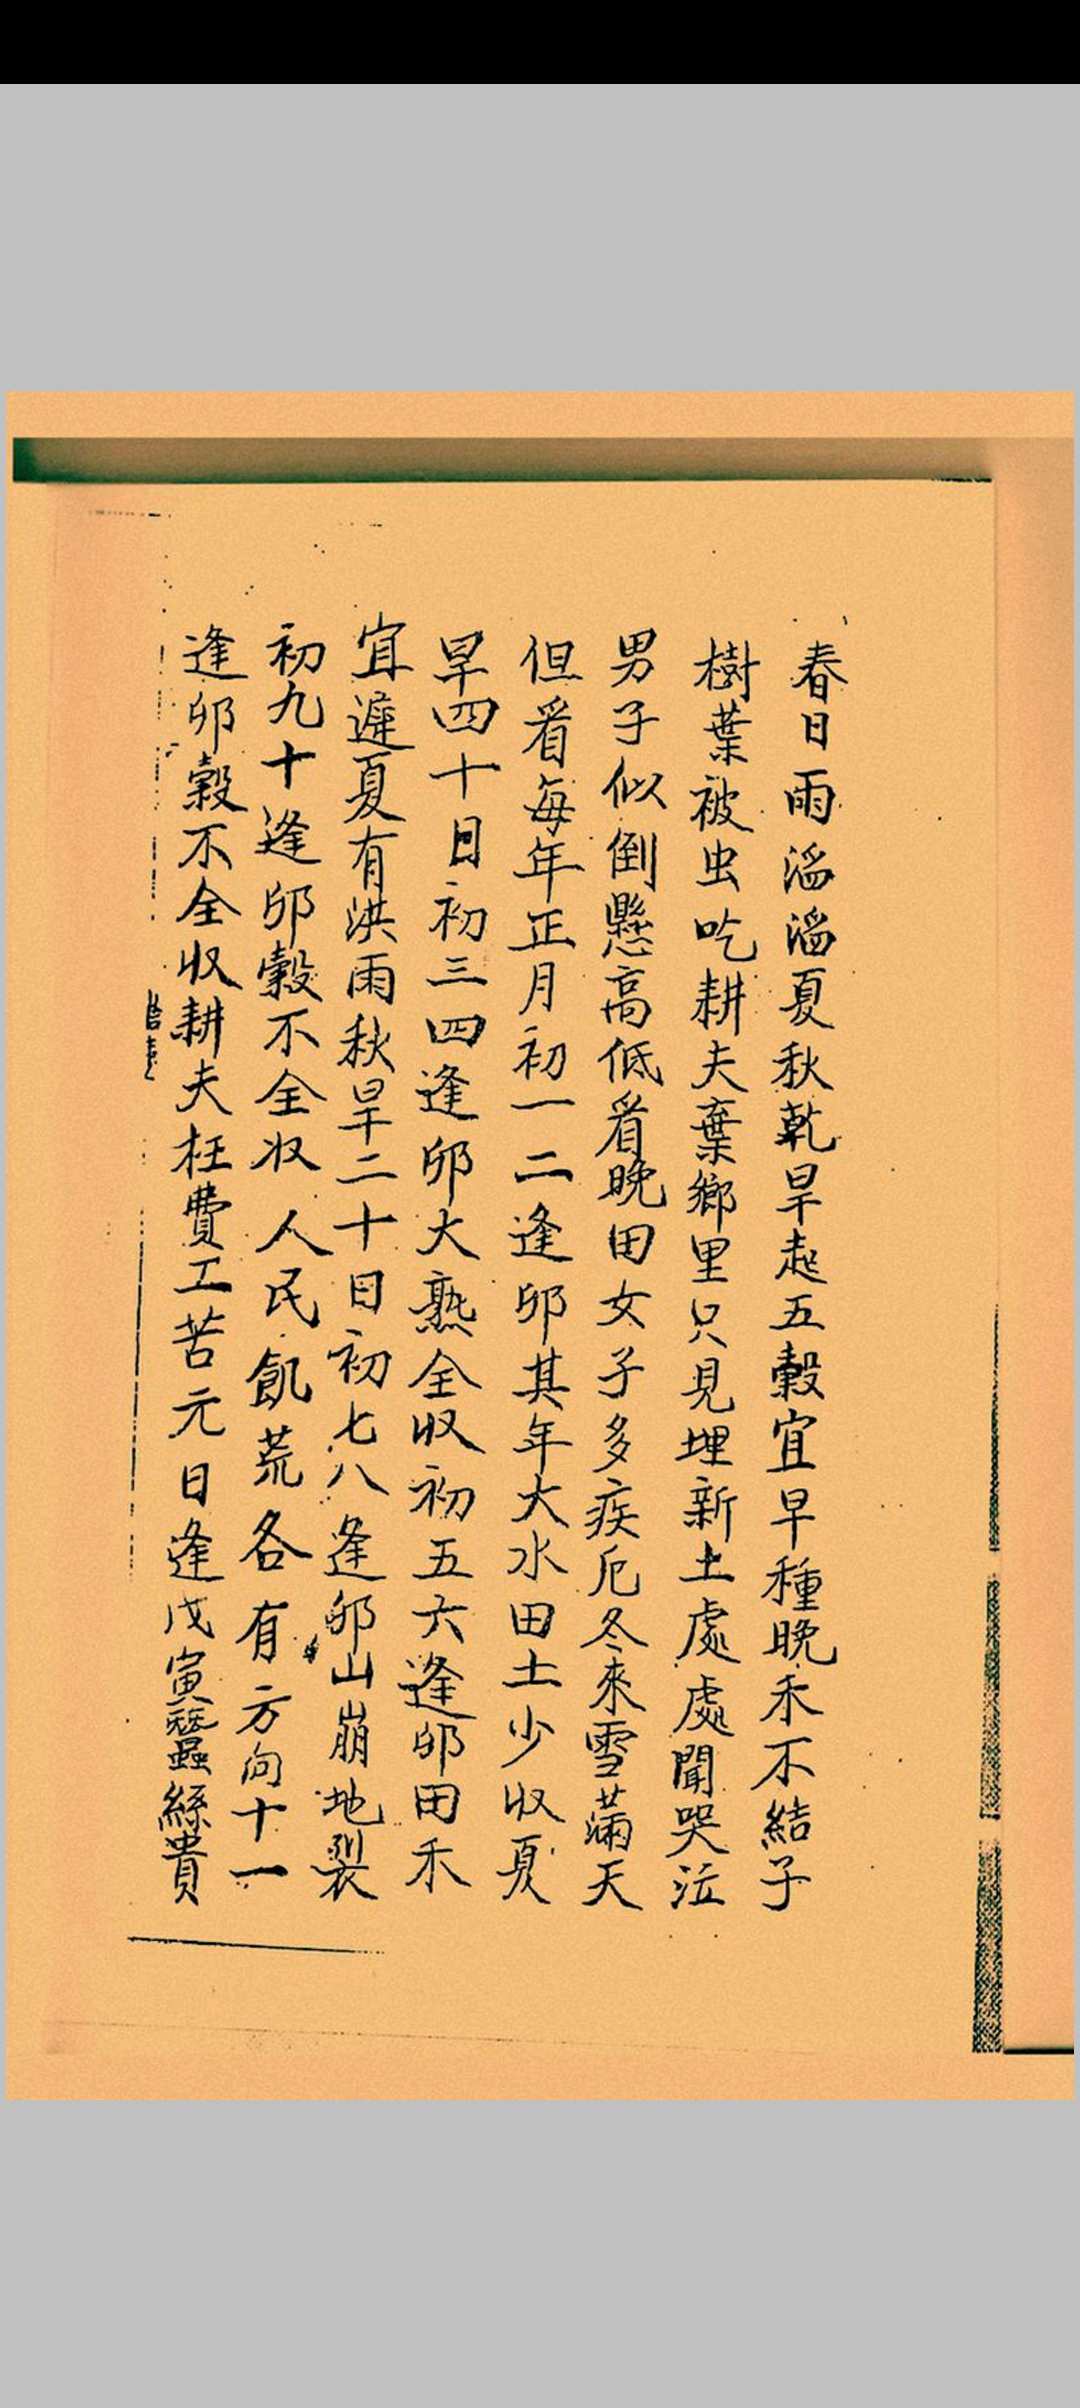 春日雨滔滔夏秋乾旱起五穀宜早種晚禾不結子
樹葉被虫吃耕夫棄鄉里只見埋新土處處聞哭泣
男子似倒懸高低看晚田女子多疾厄冬來雪滿天
但看每年正月初一二逢卯其年大水田土少收夏
旱四十日初三四逢卯大熟全收初五六逢卯田禾
宜遲夏有洪雨秋旱二十日初七八逢卯山崩地裂
初九十逢卯穀不全收人民飢荒各有方向十一
逢卯穀不全收耕夫枉費工苦元日逢戊寅蠶絲貴